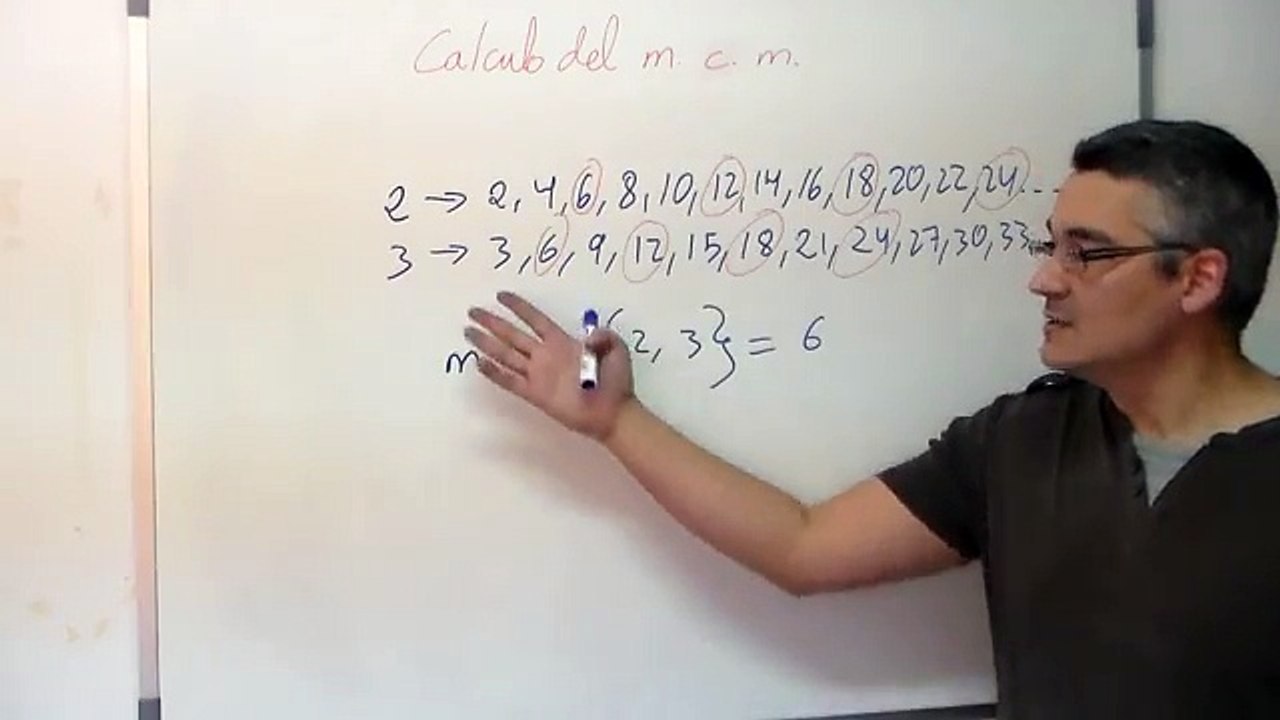 Calculo del m. c. m.
2 → 2, 4, 6, 8, 10, 12, 14, 16, 18, 20, 22, 24....
3 → 3, 6, 9, 12, 15, 18, 21, 24, 27, 30, 33,
2, 3} = 6